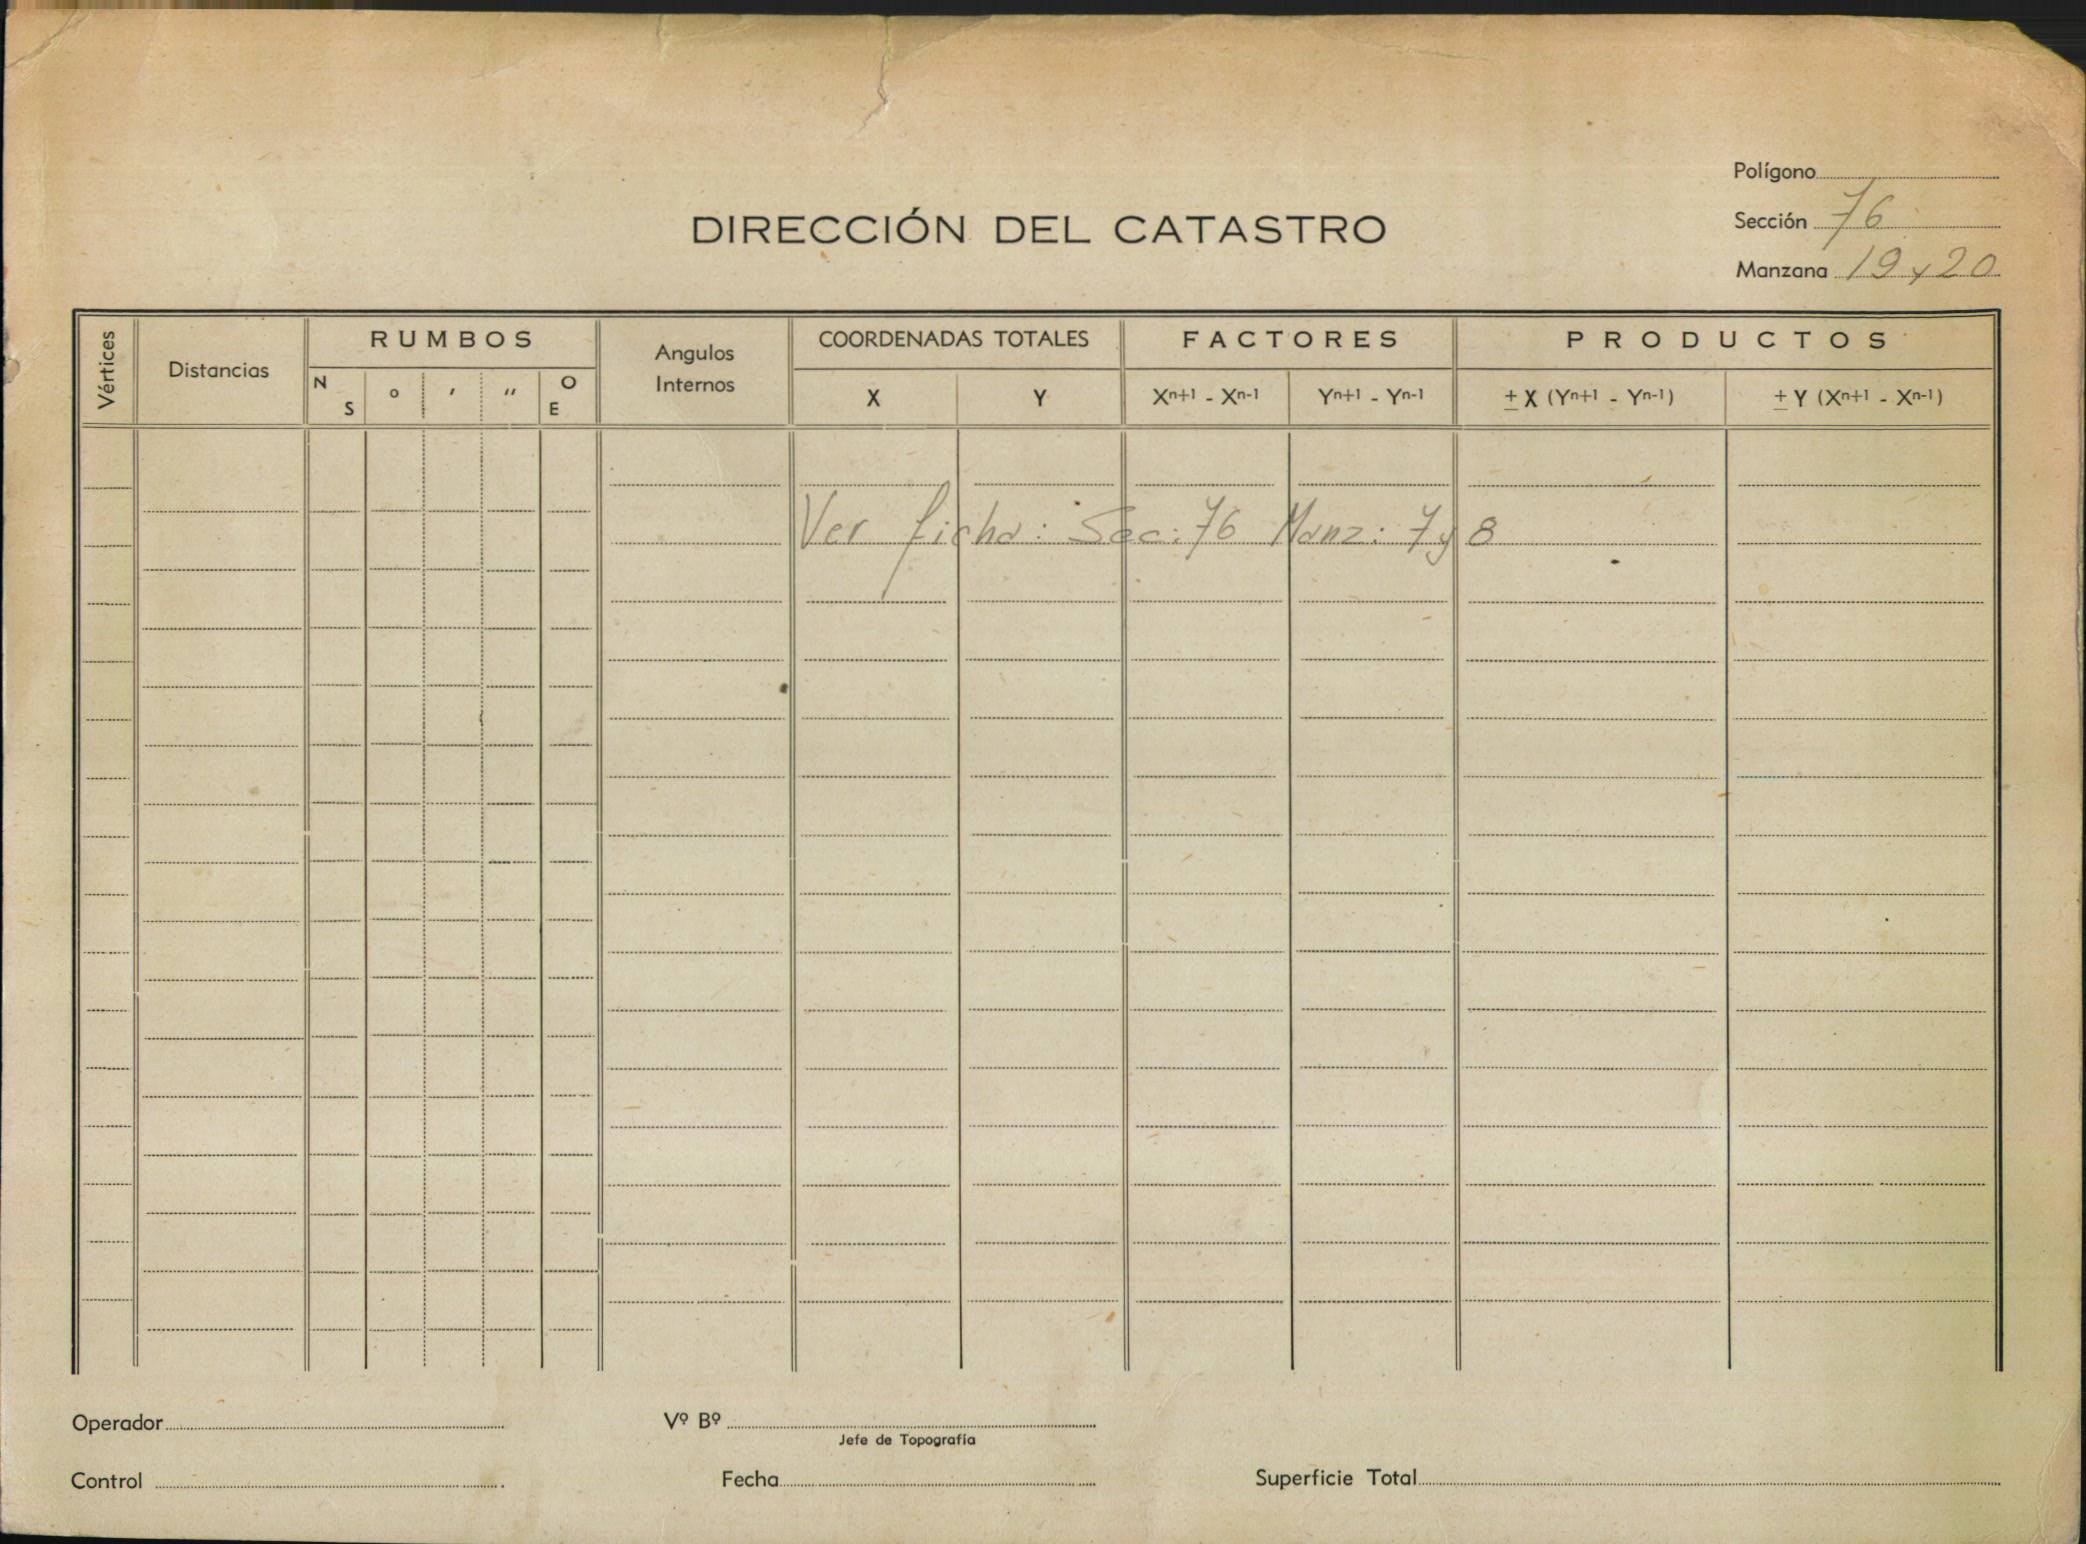 Polígono
DIRECCIÓN DEL CATASTRO
Sección 76
Manzana 19 y 20
Vértices
Distancias
RUMBOS
N S
° ′ ″
O E
Angulos Internos
COORDENADAS TOTALES
X Y
FACTORES
Xn+1 - Xn-1 Yn+1 - Yn-1
PRODUCTOS
± X (Yn+1 - Yn-1) ± Y (Xn+1 - Xn-1)
Ver ficha: Sec: 76 Manz: 7 y 8
Operador
Vº Bº
Jefe de Topografía
Control
Fecha
Superficie Total